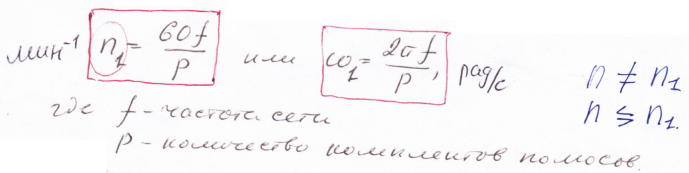 мин⁻¹ n₁ = 60f/p или ω₁ = 2πf/p, рад/с n ≠ n₁
где f - частота сети n ≶ n₁.
p - количество комплектов полюсов.